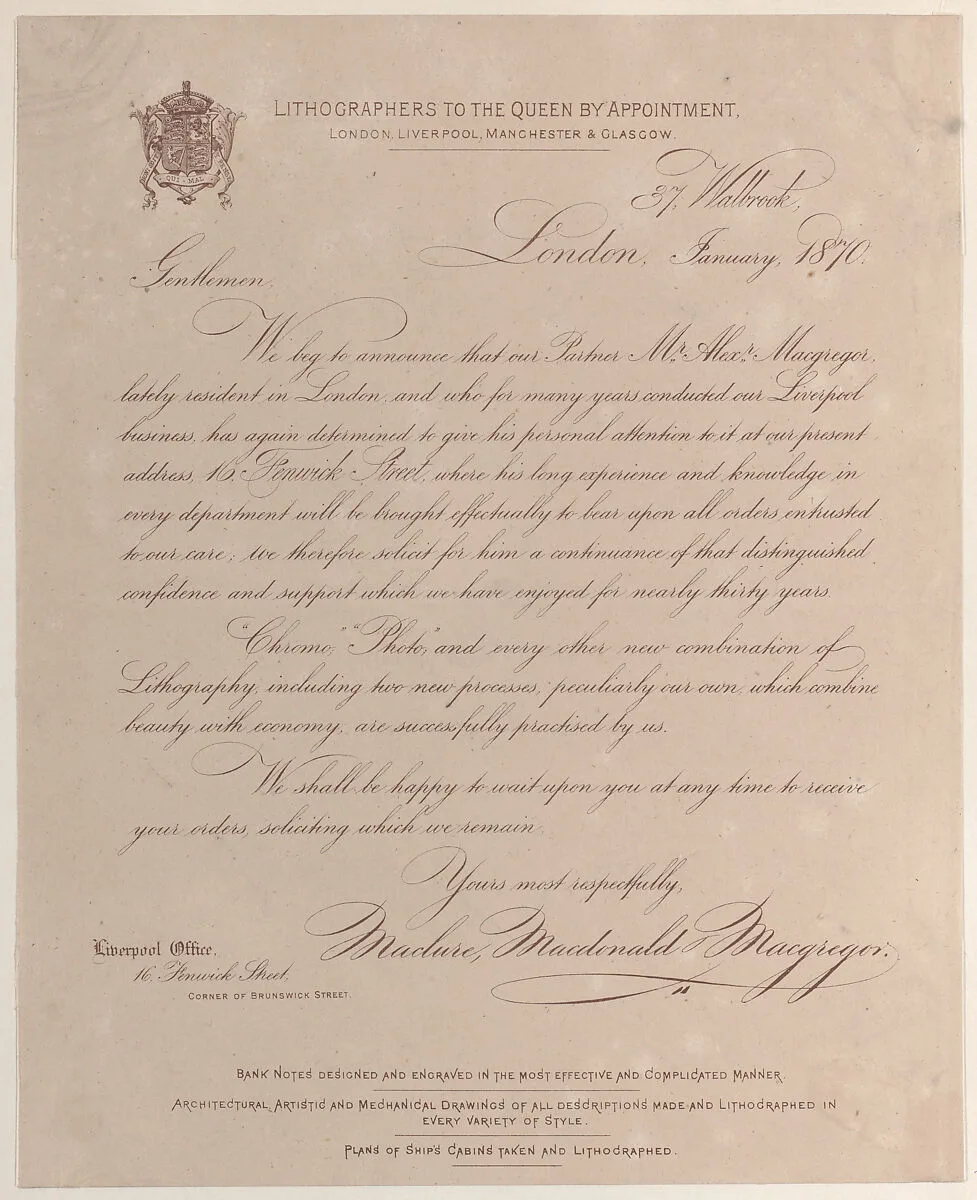 LITHOGRAPHERS TO THE QUEEN BY APPOINTMENT,
LONDON, LIVERPOOL, MANCHESTER & GLASGOW.
QUI · MAL
37, Walbrook,
London, January, 1870.
Gentlemen,
We beg to announce that our Partner Mr. Alexr. Macgregor,
lately resident in London, and who for many years conducted our Liverpool
business, has again determined to give his personal attention to it at our present
address, 16, Fenwick Street, where his long experience and knowledge in
every department will be brought effectually to bear upon all orders entrusted
to our care; we therefore solicit for him a continuance of that distinguished
confidence and support which we have enjoyed for nearly thirty years.
"Chromo," "Photo," and every other new combination of
Lithography, including two new processes, peculiarly our own, which combine
beauty with economy, are successfully practised by us.
We shall be happy to wait upon you at any time to receive
your orders, soliciting which we remain,
Yours most respectfully,
Maclure, Macdonald & Macgregor.
Liverpool Office,
16, Fenwick Street,
CORNER OF BRUNSWICK STREET.
BANK NOTES DESIGNED AND ENGRAVED IN THE MOST EFFECTIVE AND COMPLICATED MANNER.
ARCHITECTURAL, ARTISTIC AND MECHANICAL DRAWINGS OF ALL DESCRIPTIONS MADE AND LITHOGRAPHED IN
EVERY VARIETY OF STYLE.
PLANS OF SHIP'S CABINS TAKEN AND LITHOGRAPHED.